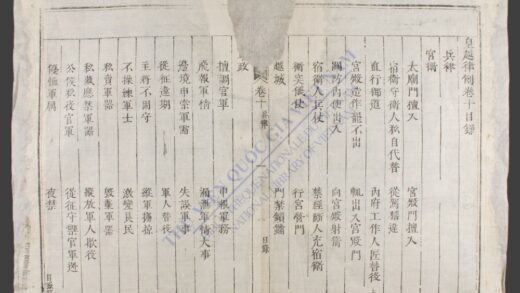 皇越律例卷十目錄
兵律
宮衛
太廟門擅入 宮殿門擅入
宿衛守衛人私自代替 從駕稽違
直行御道 內府工作人匠替役
宮殿造作罷不出 輒出入宮殿門
關防內使出入 向宮殿射箭
宿衛人兵仗 禁經斷人充宿衛
衝突儀仗 行宮營門
越城 門禁鎖鑰
卷十 兵律 一 目錄
政
擅調官軍 申報軍務
飛報軍情 漏泄軍情大事
邊境申索軍需 失誤軍事
從征違期 軍人替役
主將不固守 縱軍擄掠
不操練軍士 激變良民
私賣軍器 毀棄軍器
私藏應禁軍器 縱放軍人歇役
公侯私役官軍 從征守禦官軍逃
優恤軍屬 夜禁
THƯ VIỆN QUỐC GIA VIỆT NAM
NATIONAL LIBRARY OF VIETNAM